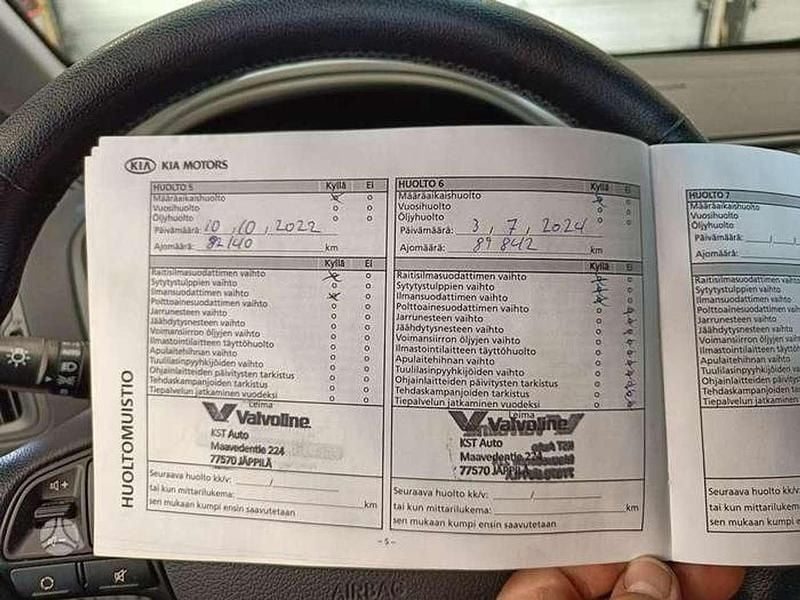 KIA KIA MOTORS
HUOLTOMUISTIO
HUOLTO 5 Kyllä Ei
Määräaikaishuolto
Vuosihuolto
Öljyhuolto
Päivämäärä: 10, 10, 2022
Ajomäärä: 82140 km
Kyllä Ei
Raitisilmasuodattimen vaihto
Sytytystulppien vaihto
Ilmansuodattimen vaihto
Polttoainesuodattimen vaihto
Jarrunesteen vaihto
Jäähdytysnesteen vaihto
Voimansiirron öljyjen vaihto
Ilmastointilaitteen täyttöhuolto
Apulaitehihnan vaihto
Tuulilasinpyyhkijöiden vaihto
Ohjainlaitteiden päivitysten tarkistus
Tehdaskampanjoiden tarkistus
Tiepalvelun jatkaminen vuodeksi
Leima
Valvoline
KST Auto
Maavedentie 224
77570 JÄPPILÄ
Seuraava huolto kk/v: /
tai kun mittarilukema: km
sen mukaan kumpi ensin saavutetaan
HUOLTO 6 Kyllä Ei
Määräaikaishuolto
Vuosihuolto
Öljyhuolto
Päivämäärä: 3, 7, 2024
Ajomäärä: 89842 km
Kyllä Ei
Raitisilmasuodattimen vaihto
Sytytystulppien vaihto
Ilmansuodattimen vaihto
Polttoainesuodattimen vaihto
Jarrunesteen vaihto
Jäähdytysnesteen vaihto
Voimansiirron öljyjen vaihto
Ilmastointilaitteen täyttöhuolto
Apulaitehihnan vaihto
Tuulilasinpyyhkijöiden vaihto
Ohjainlaitteiden päivitysten tarkistus
Tehdaskampanjoiden tarkistus
Tiepalvelun jatkaminen vuodeksi
Leima
Valvoline
KST Auto
Maavedentie 224
77570 JÄPPILÄ
Seuraava huolto kk/v: /
tai kun mittarilukema: km
sen mukaan kumpi ensin saavutetaan
- 5 -
HUOLTO 7
Määräaikaishuolto
Vuosihuolto
Öljyhuolto
Päivämäärä:
Ajomäärä:
Raitisilmasuodattimen
Sytytystulppien vaihto
Ilmansuodattimen vaihto
Polttoainesuodattimen
Jarrunesteen vaihto
Jäähdytysnesteen vaihto
Voimansiirron öljyjen
Ilmastointilaitteen
Apulaitehihnan vaihto
Tuulilasinpyyhkijöiden
Ohjainlaitteiden
Tehdaskampanjoiden
Tiepalvelun jatkaminen
Seuraava huolto kk/v:
tai kun mittarilukema:
sen mukaan kumpi ensin
AIRBAG